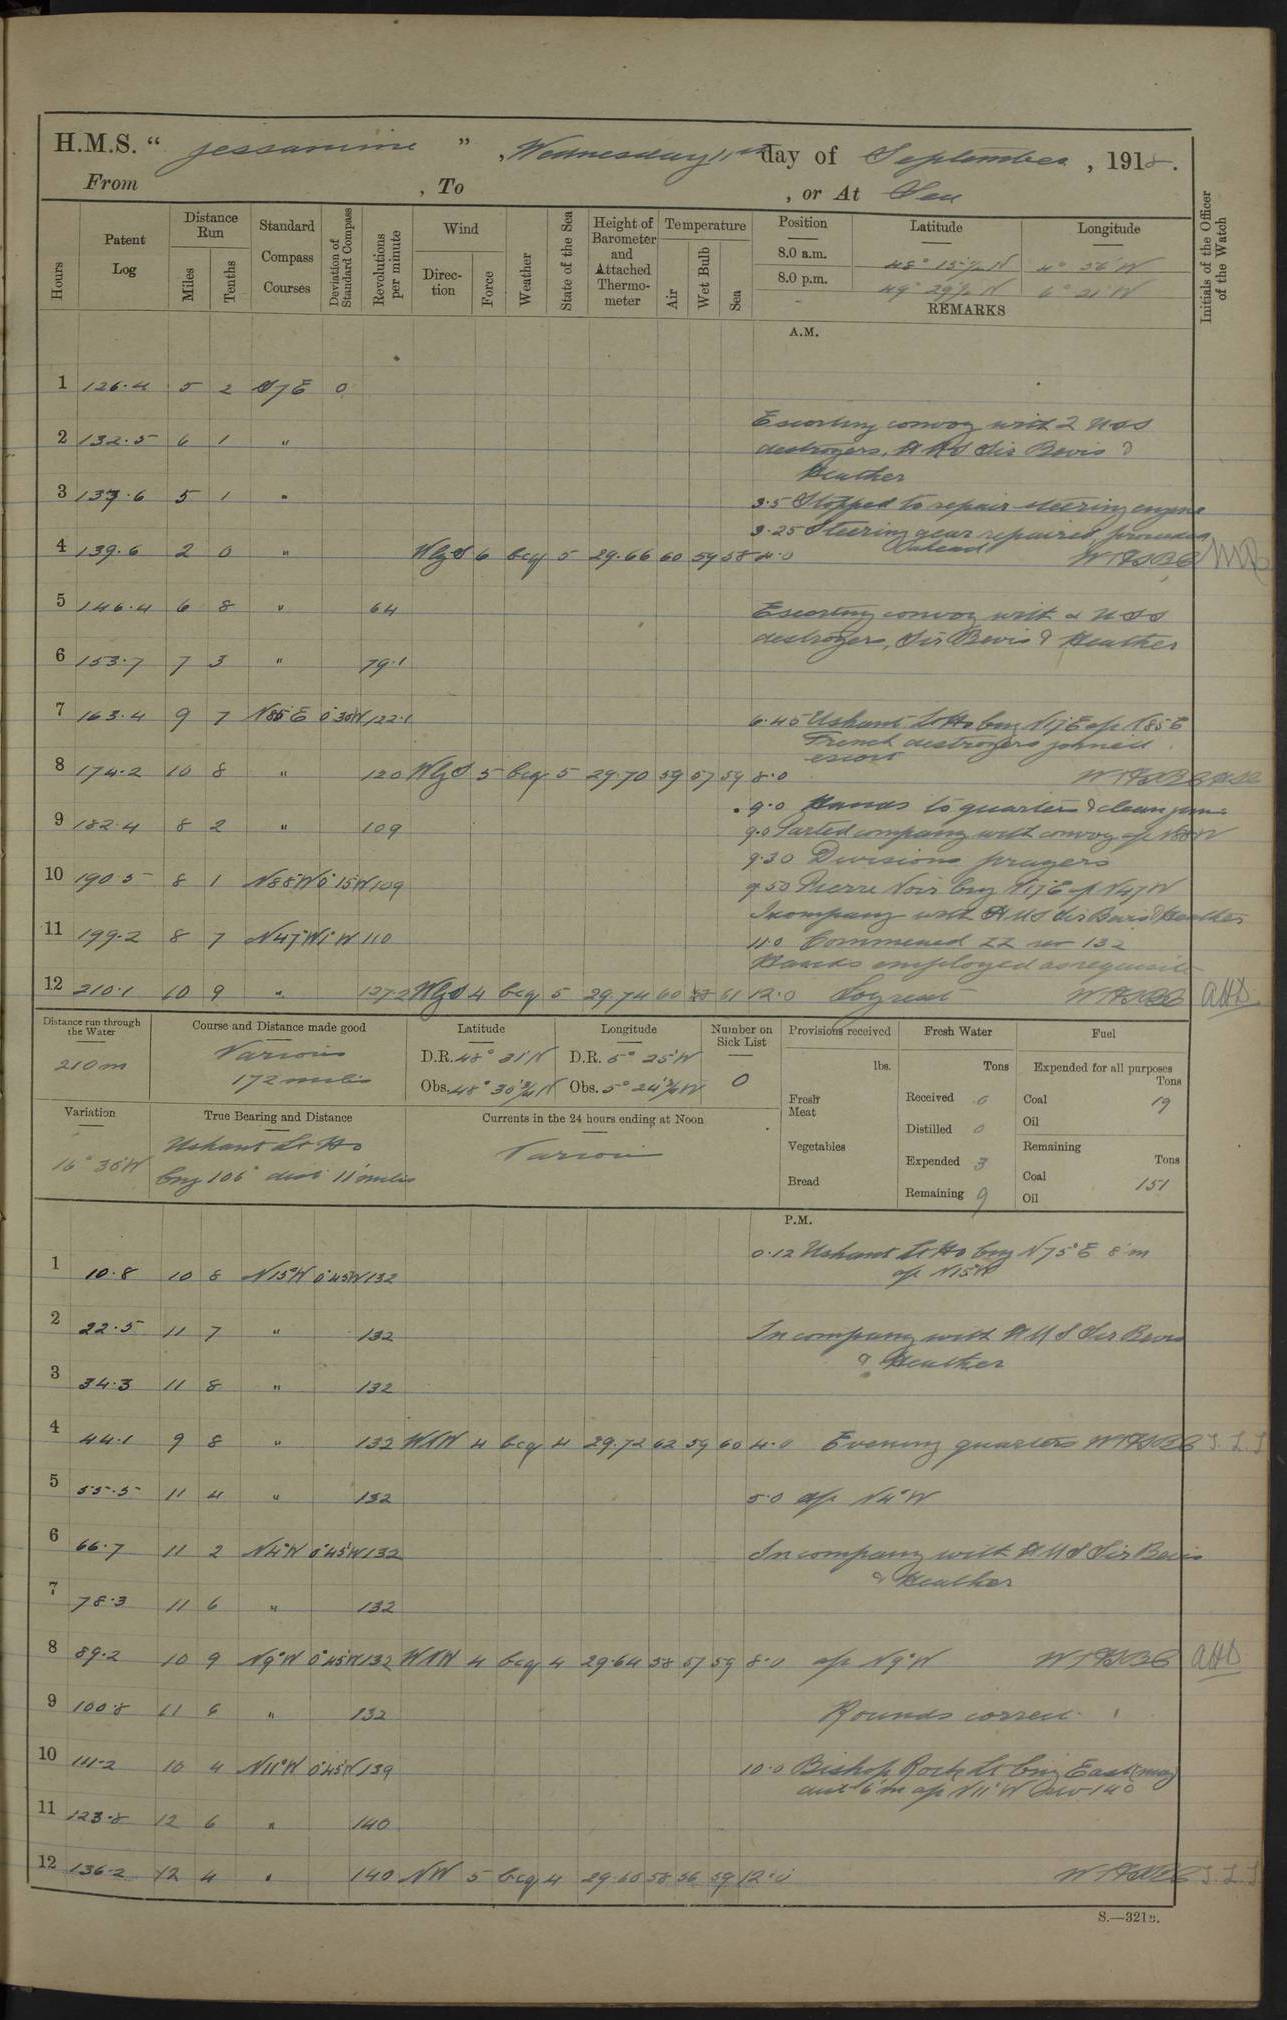 H.M.S. “ Jessamine ” , Wednesday 11th day of September , 1918.
From , To , or At Sea
Hours
Patent Log
Distance Run
Miles
Tenths
Standard Compass Courses
Deviation of Standard Compass
Revolutions per minute
Wind
Direction
Force
Weather
State of the Sea
Height of Barometer and Attached Thermometer
Temperature
Air
Wet Bulb
Sea
Position Latitude Longitude
8.0 a.m. 48° 15½'N 4° 56'W
8.0 p.m. 49° 29½'N 6° 21'W
REMARKS
Initials of the Officer of the Watch
A.M.
1 126.4 5 2 S7E 0
Escorting convoy with 2 USS
2 132.5 6 1 "
destroyers, HMS Sir Bevis &
Heather
3 137.6 5 1 "
3.5 Stopped to repair steering engine
3.25 Steering gear repaired proceeded
ahead
4 139.6 2 0 " WbyS 6 bcq 5 29.66 60 59 58 4.0
5 146.4 6 8 " 64
Escorting convoy with 2 USS
destroyers, Sir Bevis & Heather
6 153.7 7 3 " 79.1
7 163.4 9 7 N85°E 0°30'W 122.1
6.45 Ushant Lt Ho brg N17°E a/c N85E
French destroyers joined
escort
8 174.2 10 8 " 120 WbyS 5 bcq 5 29.70 59 57 59 8.0
9.0 Hands to quarters & clean guns
9 182.4 8 2 " 109
9.0 Parted company with convoy a/c N88W
9.30 Divisions prayers
10 190.5 8 1 N88°W 0°15'W 109
9.50 Pierre Noir brg N17°E a/c N47W
In company with HMS Sir Bevis & Heather
11 199.2 8 7 N47°W 1°W 110
11.0 Commenced ZZ rev 132
Hands employed as requisite
12 210.1 10 9 " 127.2 WbyS 4 bcq 5 29.74 60 61 12.0 Log reset
Distance run through the Water
210m
Course and Distance made good
Various
172 miles
Latitude
D.R. 48° 31'N
Obs. 48° 30¾'N
Longitude
D.R. 5° 25'W
Obs. 5° 24¾'W
Number on Sick List
0
Provisions received
lbs.
Fresh Meat
Vegetables
Bread
Fresh Water
Tons
Received 0
Distilled 0
Expended 3
Remaining 9
Fuel
Expended for all purposes
Tons
Coal 19
Oil
Remaining
Tons
Coal 151
Oil
Variation
16° 30'W
True Bearing and Distance
Ushant Lt Ho
brg 106° dist 11 miles
Currents in the 24 hours ending at Noon
Various
P.M.
0.12 Ushant Lt Ho brg N75°E 8'm
1 10.8 10 8 N15°W 0°45'W 132
a/c N15W
2 22.5 11 7 " 132
In company with HMS Sir Bevis
& Heather
3 34.3 11 8 " 132
4 44.1 9 8 " 132 WNW 4 bcq 4 29.72 62 59 60 4.0 Evening quarters
5 55.5 11 4 " 132 5.0 a/c N4°W
6 66.7 11 2 N4°W 0°45'W 132
In company with HMS Sir Bevis
& Heather
7 78.3 11 6 " 132
8 89.2 10 9 N9°W 0°45'W 132 WNW 4 bcq 4 29.64 58 57 59 8.0 a/c N9°W
9 100.8 11 6 " 132
Rounds correct
10 111.2 10 4 N11°W 0°45'W 139
10.0 Bishop Rock Lt brg East (mag)
dist 6'm a/c N11°W rev 140
11 123.8 12 6 " 140
12 136.2 12 4 " 140 NW 5 bcq 4 29.65 58 56 59 12.0
S.—321B.